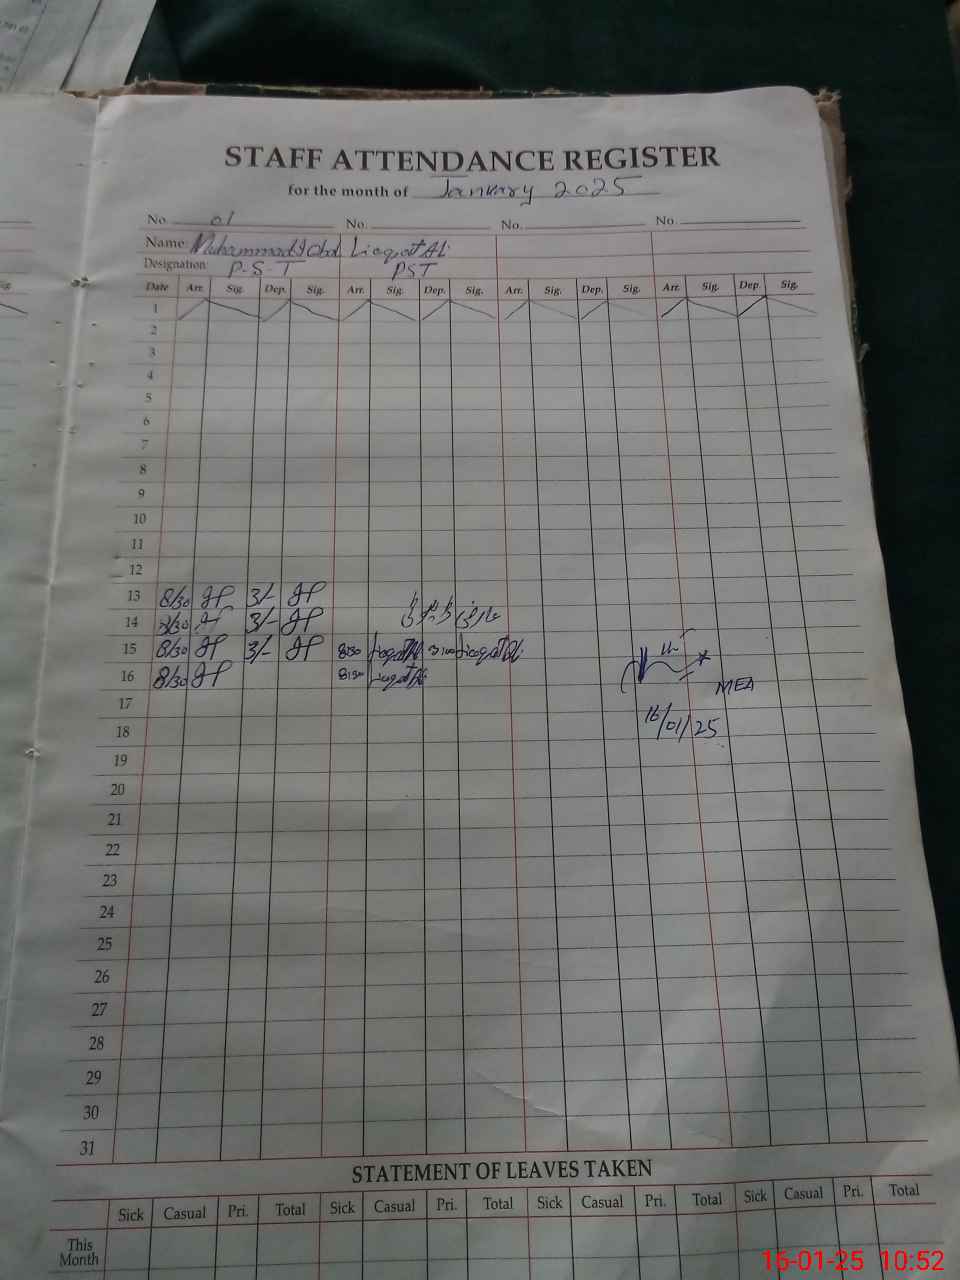 STAFF ATTENDANCE REGISTER
for the month of January 2025
No. 01 No. No. No.
Name: Muhammad Iqbal Liaqat Ali
Designation: P-S-T PST
Date Arr. Sig. Dep. Sig. Arr. Sig. Dep. Sig. Arr. Sig. Dep. Sig. Arr. Sig. Dep. Sig.
1
2
3
4
5
6
7
8
9
10
11
12
13 8/30 3/-
14 8/30 3/-
15 8/30 3/- 8:30 Liaqat Ali 3:00 Liaqat Ali
16 8/30 8:30 Liaqat Ali
MEA
17
16/01/25
18
19
20
21
22
23
24
25
26
27
28
29
30
31
STATEMENT OF LEAVES TAKEN
Sick Casual Pri. Total Sick Casual Pri. Total Sick Casual Pri. Total Sick Casual Pri. Total
This
Month
16-01-25 10:52